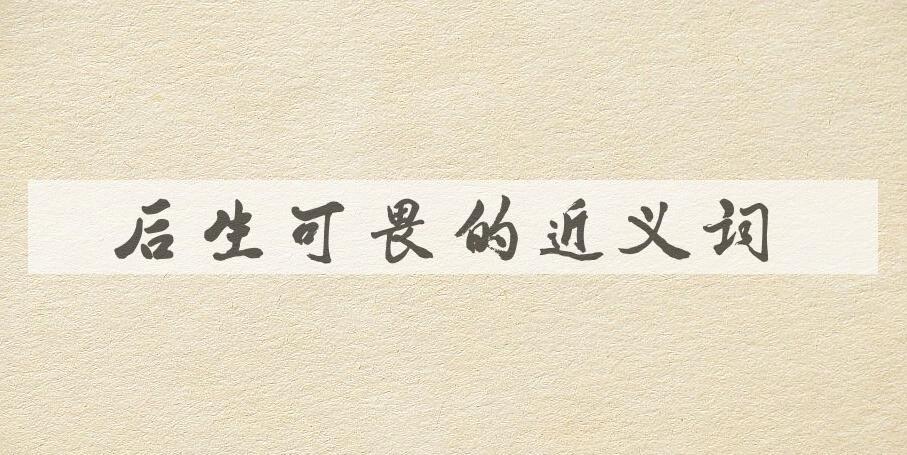 后生可畏的近义词